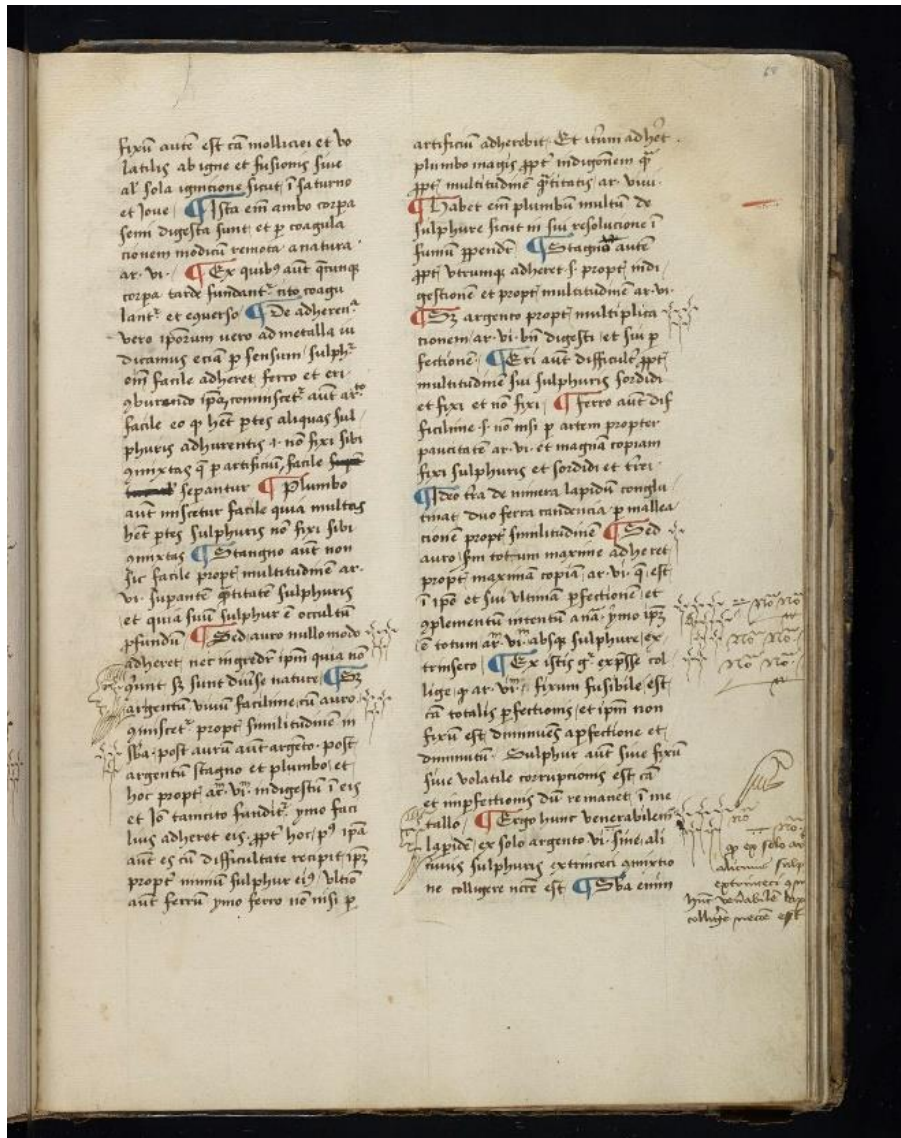 fixū autē est cā molliciei et vo
latilis ab igne et fusionis siue
al' sola ignicione sicut ī saturno
et Joue ¶ Ista em̄ ambo corpa
semi digesta sunt et p coagula
cionem modicū remota a natura
ar. vi. ¶ Ex quibꝯ aūt qcunqꝫ
corpa tarde fundant cito coagu
lant et econuerso ¶ De adheren
vero ipōrum vero ad metalla iā
dicamus eciā p sensum sulph
om̄ facile adheret ferro et eri
ꝯburendo ipā cōminiscet aūt ar
facile eo ꝙ hēt ptes aliquas sul
phuris adhurentis et nō fixi sibi
ꝯmixtas q p artificiū facile
sepantur ¶ Plumbo
aūt miscetur facile quia multas
hēt ptes sulphuris nō fixi sibi
ꝯmixtas ¶ Stangno aūt non
sic facile propt multitudinē ar.
vi. supantē qtitatē sulphuris
et quia suū sulphur ē occultū
pfundū ¶ Sed auro nullomodo
adheret nec ingredr ipm quia nō
ꝯueniunt sꝫ sunt diuise nature ¶ Sꝫ
argentū viuū facilime cū auro
ꝯmiscet propt similitudinē in
sba. post aurū aūt argēto. post
argentū stagno et plumbo et
hoc propt ar. vi. indigestū ī eis
et Jō tam cito fundit ymo faci
lius adheret eis. ꝓpt hoc. pꝰ ipā
aūt es cū difficultate recipit ipꝫ
propt nimiū sulphur eiꝰ vltīo
aūt ferrū ymo ferro nō nisi p
artificiū adherebit. Et itm̄ adhet
plumbo magis ꝓpt indigōnem q
ꝓpt multitudinē qtitatis ar. viui.
¶ Habet em̄ plumbū multū de
sulphure sicut in sui resolucione ī
fumū ꝓpendit ¶ Stagno autē
ꝓpt vtrumqꝫ adheret s. propt indi
gestionē et propt multitudinē ar. vi.
¶ Sꝫ argento propt multiplica
tionem ar. vi. bn̄ digesti et sui p
fectionē ¶ Eri aūt difficulr ꝓpt
multitudinē sui sulphuris sordidi
et fixi et nō fixi ¶ Ferro aūt dif
ficilime s. nō nisi p artem propter
paucitatē ar. vi. et magnā copiam
fixi sulphuris et sordidi et trei.
¶ Ideo tra de minera lapidū conglu
tinat duo ferra candencia p mallea
cionē propt similitudinē ¶ Sed
auro sm̄ totum maxime adheret
propt maximā copiā ar. vi. q est
ī ipō et sui vltimā pfectionē et
ꝯplementū intentū a nā. ymo ipꝫ
ē totum ar. vi. absqꝫ sulphure ex
trinseco ¶ Ex istis g expsse col
lige ꝙ ar. vi. fixum fusibile est
cā totalis pfectionis et ipm non
fixū est diminuēs a pfectione et
diminutū. Sulphur aūt siue fixū
siue volatile corrupcionis est cā
et impfectionis dū remanet ī me
tallo ¶ Ergo hunc venerabilem
lapidē ex solo argento vi. sine ali
cuius sulphuris extrinceci ꝯmixtio
ne colligere necē est ¶ Sba enim
Nō Nō
Nō Nō
Nō Nō
Nō
Nō
ꝙ ex solo ar
alicuius sulp
extrinceci ꝯm
hūc venabilē lap
colligē necee est